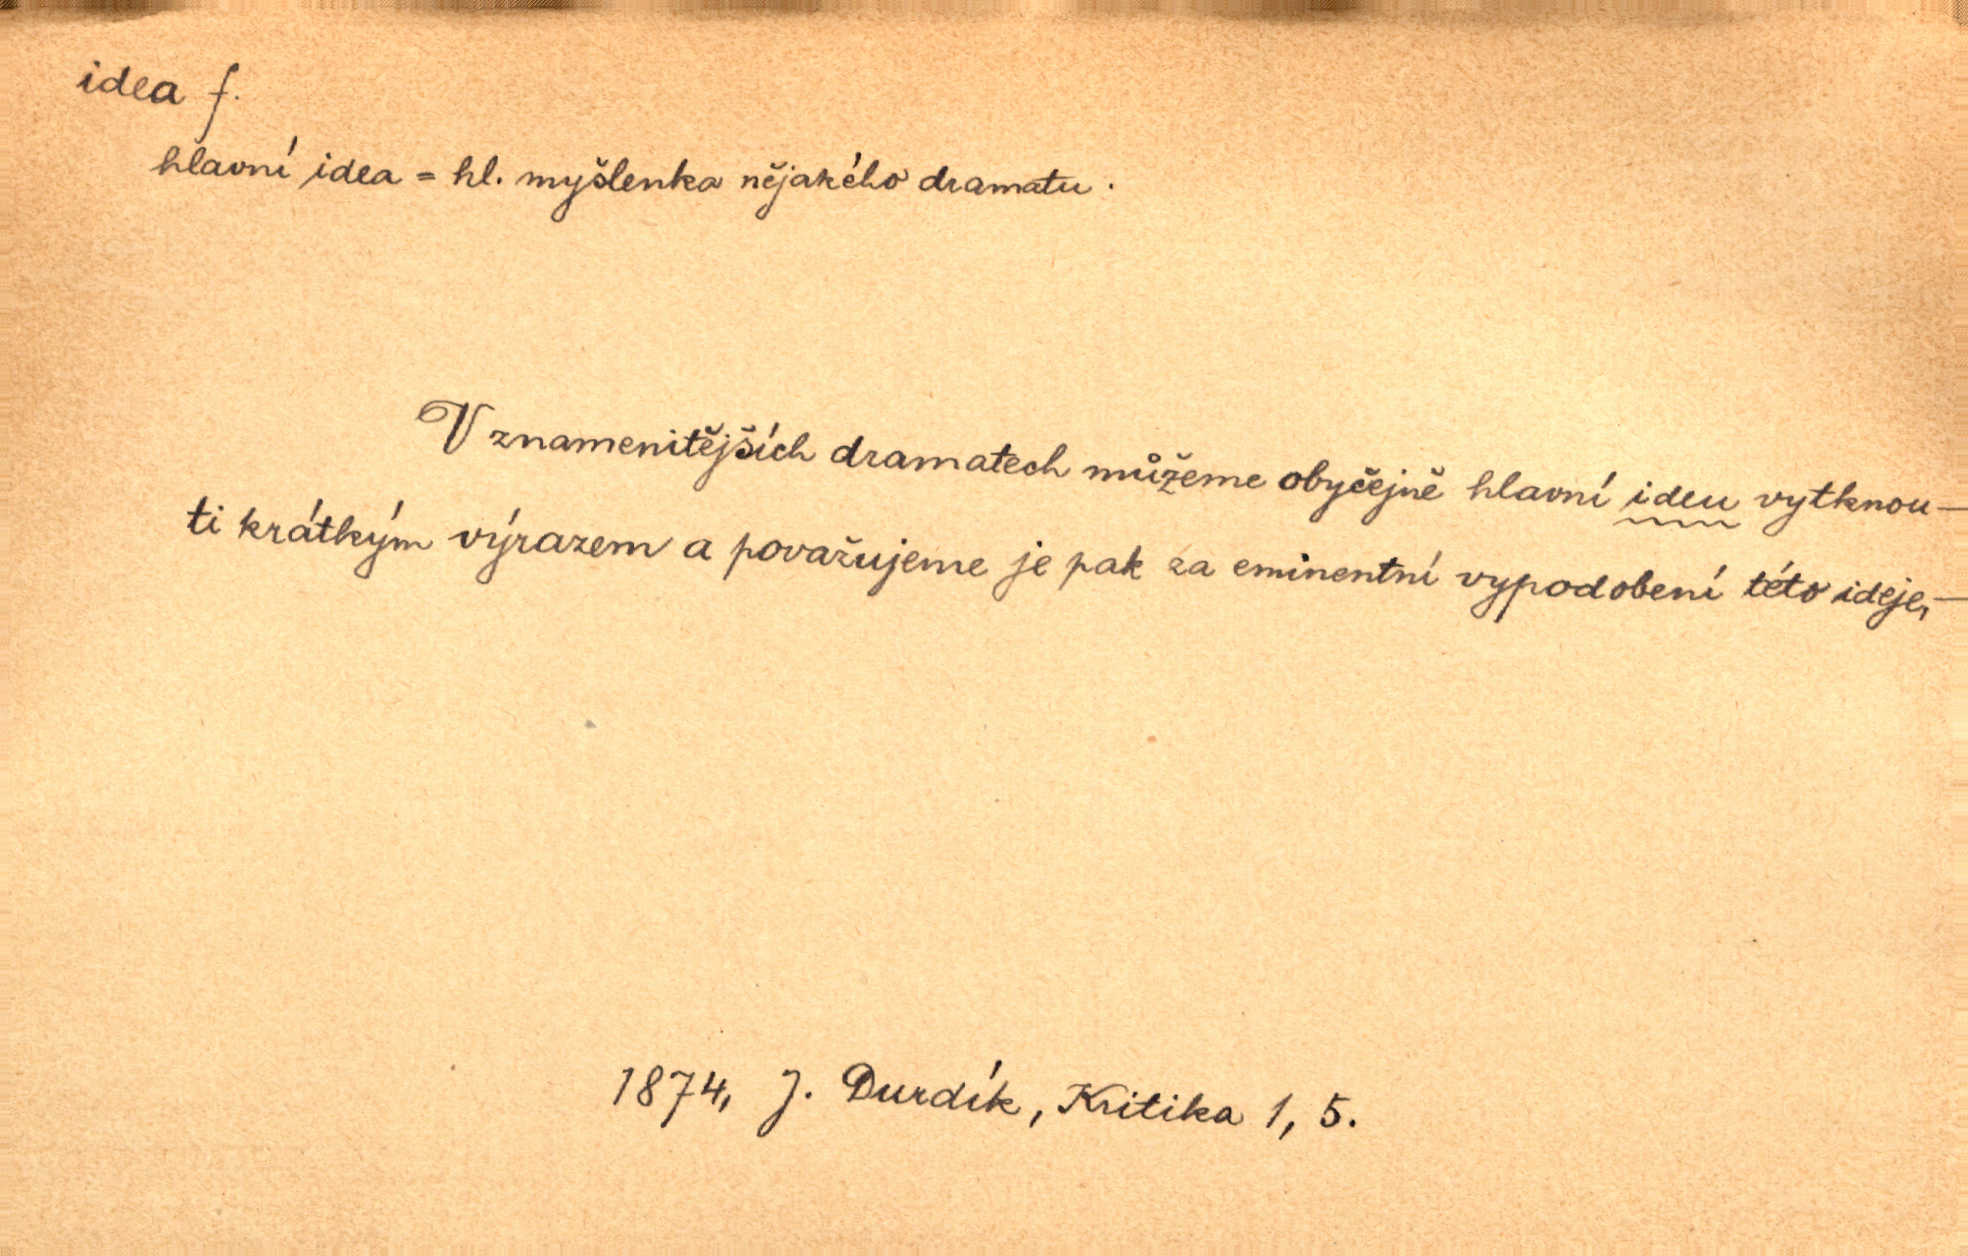 idea f.
hlavní idea = hl. myšlenka nějakého dramatu.
V znamenitějších dramatech můžeme obyčejně hlavní ideu vytknou-
ti krátkým výrazem a považujeme je pak za eminentní vypodobení této ideje, —
1874, J. Durdík, Kritika 1, 5.